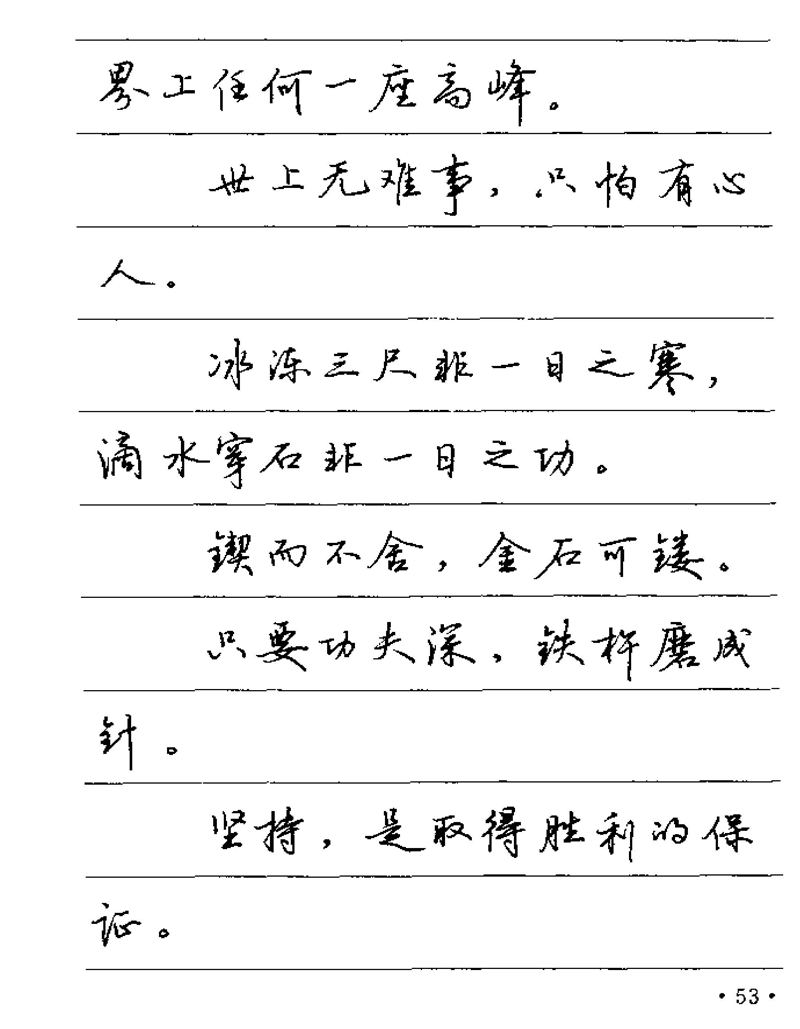 界上任何一座高峰。
世上无难事，只怕有心
人。
冰冻三尺非一日之寒，
滴水穿石非一日之功。
锲而不舍，金石可镂。
只要功夫深，铁杵磨成
针。
坚持，是取得胜利的保
证。
·53·